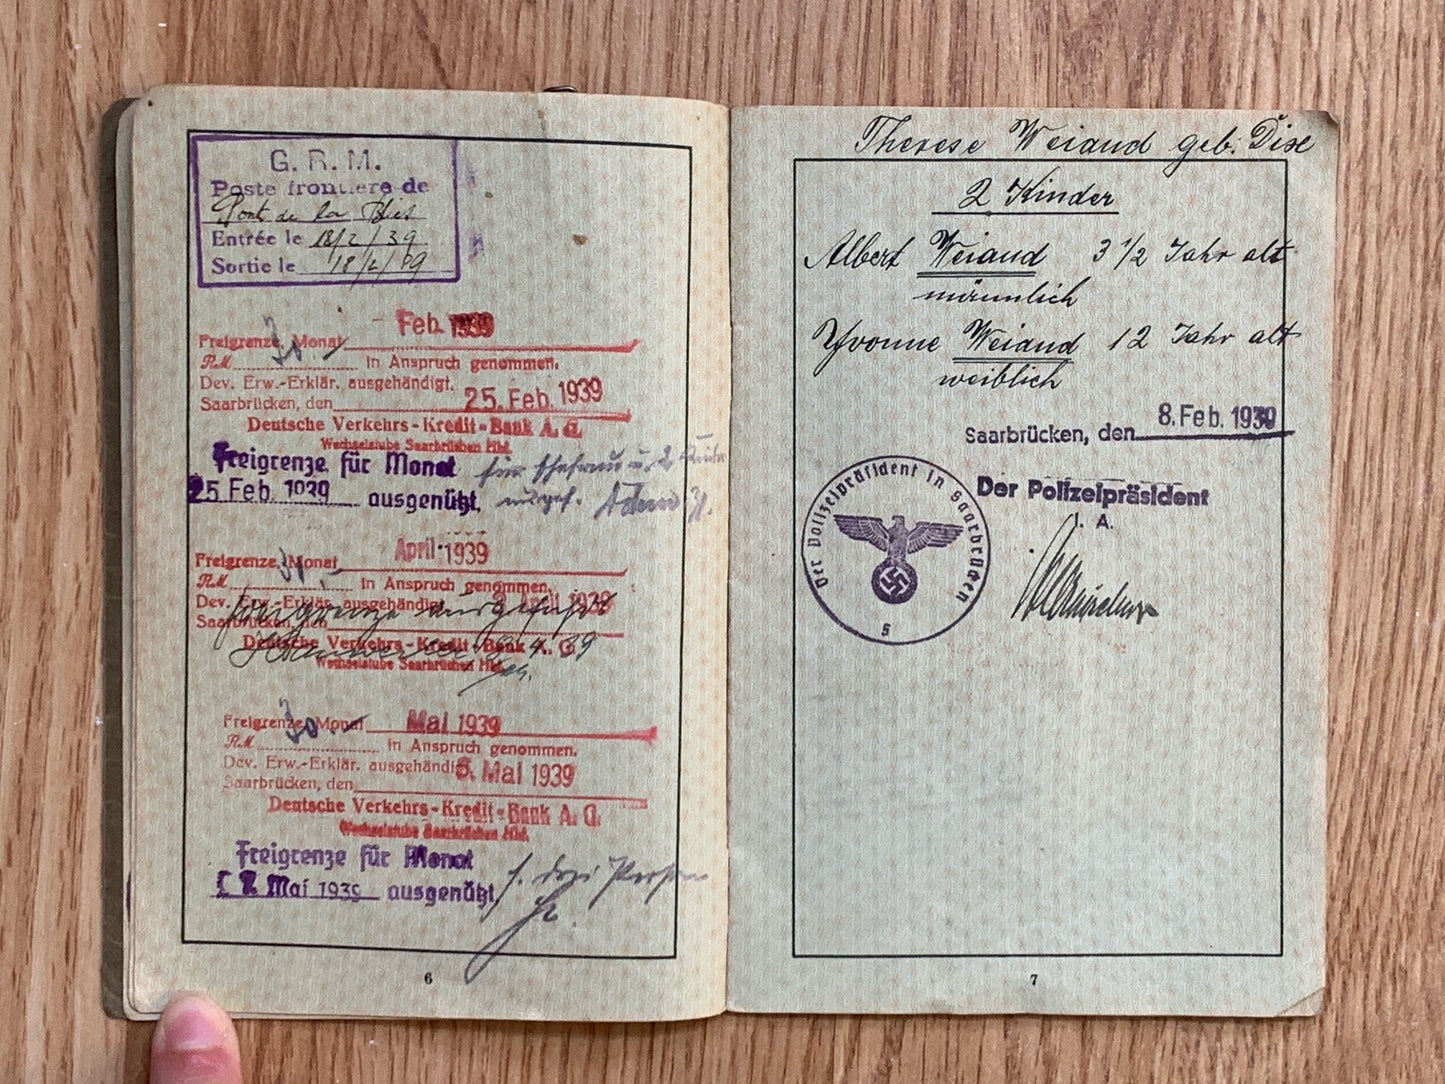 G. R. M.
Poste frontière de
Pont de la Blies
Entrée le 18/2/39
Sortie le 18/2/39
Feb. 1939
Freigrenze, Monat
30.-
RM in Anspruch genommen.
Dev. Erw.-Erklär. ausgehändigt.
Saarbrücken, den 25. Feb. 1939
Deutsche Verkehrs-Kredit-Bank A. G.
Wechselstube Saarbrücken Hbf.
Freigrenze für Monat für Ehefrau u. 2 Kinder
25 Feb. 1939 ausgenützt,
April 1939
Freigrenze, Monat
30.-
RM in Anspruch genommen.
Dev. Erw.-Erklär. ausgehändigt April 1939
Freigrenze
Saarbrücken, den
Deutsche Verkehrs-Kredit-Bank A. G.
4. 39
Wechselstube Saarbrücken Hbf.
Freigrenze, Monat Mai 1939
30.-
RM in Anspruch genommen.
Dev. Erw.-Erklär. ausgehändi 6. Mai 1939
Saarbrücken, den
Deutsche Verkehrs-Kredit-Bank A. G.
Wechselstube Saarbrücken Hbf.
Freigrenze für Monat
Mai 1939 ausgenützt, f. drei Personen
6
Therese Weiand geb: Dise
2 Kinder
Albert Weiand 3 1/2 Jahr alt
männlich
Yvonne Weiand 12 Jahr alt
weiblich
8. Feb. 1939
Saarbrücken, den
Der Polizeipräsident
I. A.
Der Polizeipräsident in Saarbrücken
5
7